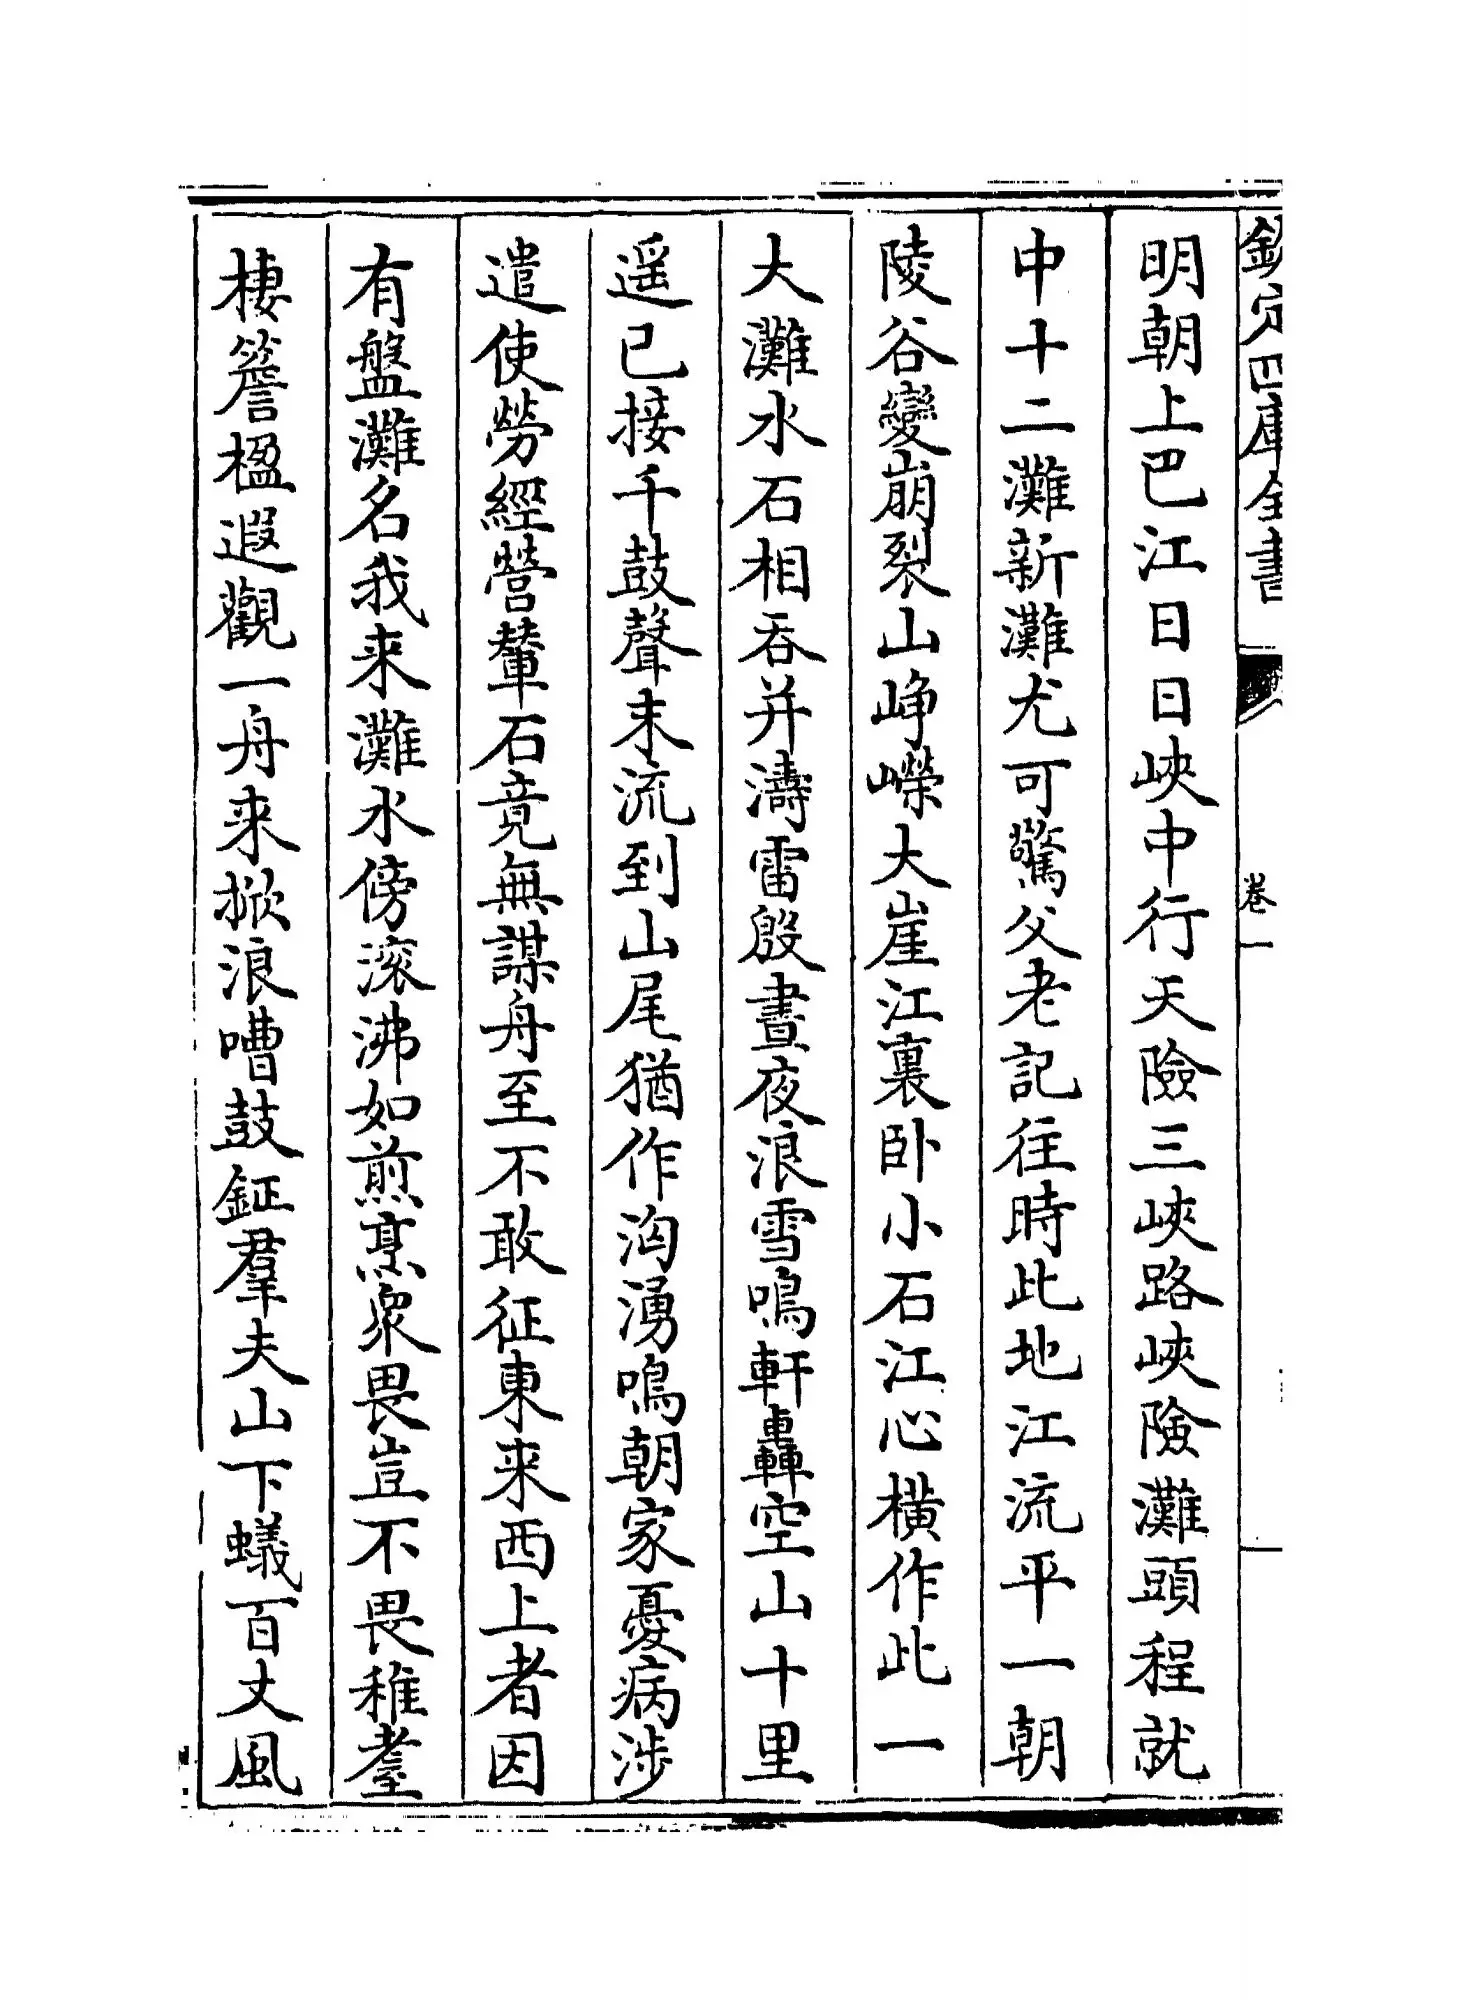 欽定四庫全書
卷一
明朝上巴江日日峽中行天險三峽路峽險灘頭程就
中十二灘新灘尤可驚父老記往時此地江流平一朝
陵谷變崩裂山崢嶸大崖江裏卧小石江心橫作此一
大灘水石相吞并濤雷殷晝夜浪雪鳴軒轟空山十里
遥已接千鼓聲末流到山尾猶作洶湧鳴朝家憂病涉
遣使勞經營輦石竟無謀舟至不敢征東来西上者因
有盤灘名我来灘水傍滚沸如煎烹衆畏豈不畏稚耋
棲簷楹遐觀一舟来掀浪嘈鼓鉦羣夫山下蟻百丈風